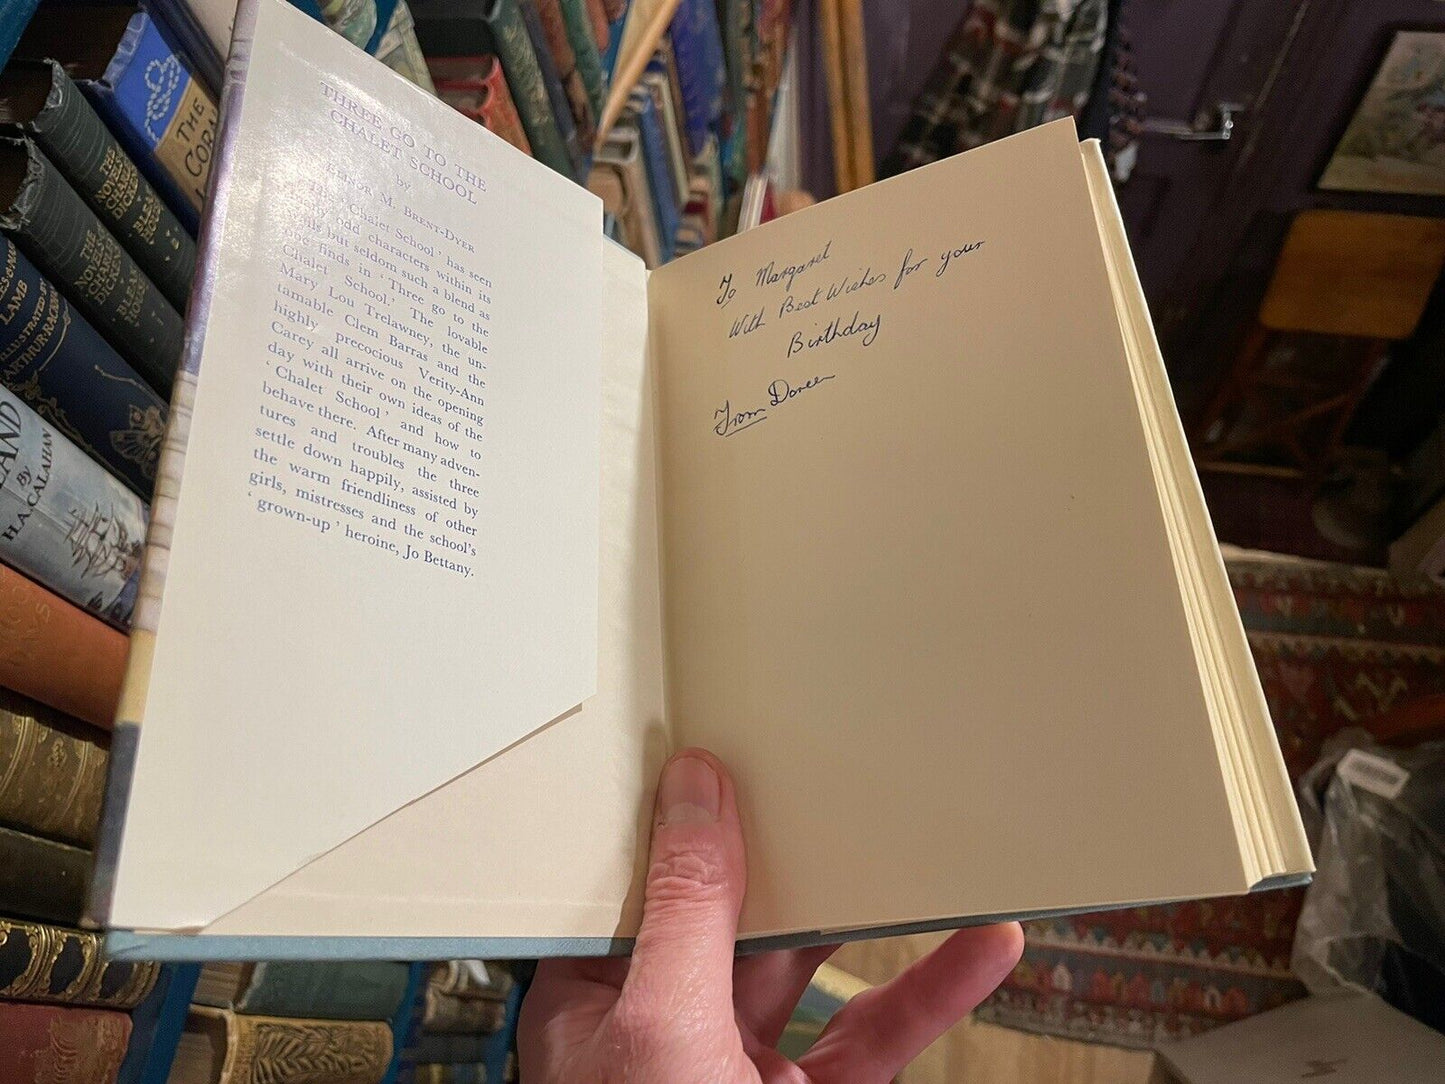 THREE GO TO THE
CHALET SCHOOL
by
ELINOR M. BRENT-DYER
The ' Chalet School ' has seen
many odd characters within its
walls but seldom such a blend as
one finds in ' Three go to the
Chalet School.' The lovable
Mary Lou Trelawney, the un-
tamable Clem Barras and the
highly precocious Verity-Ann
Carey all arrive on the opening
day with their own ideas of the
' Chalet School ' and how to
behave there. After many adven-
tures and troubles the three
settle down happily, assisted by
the warm friendliness of other
girls, mistresses and the school's
' grown-up ' heroine, Jo Bettany.
To Margaret
With Best Wishes for your
Birthday
From Doreen
THE
LAMB
ILLUSTRATED BY
ARTHUR RACKHAM
LAND
BY
H.A. CALAHAN